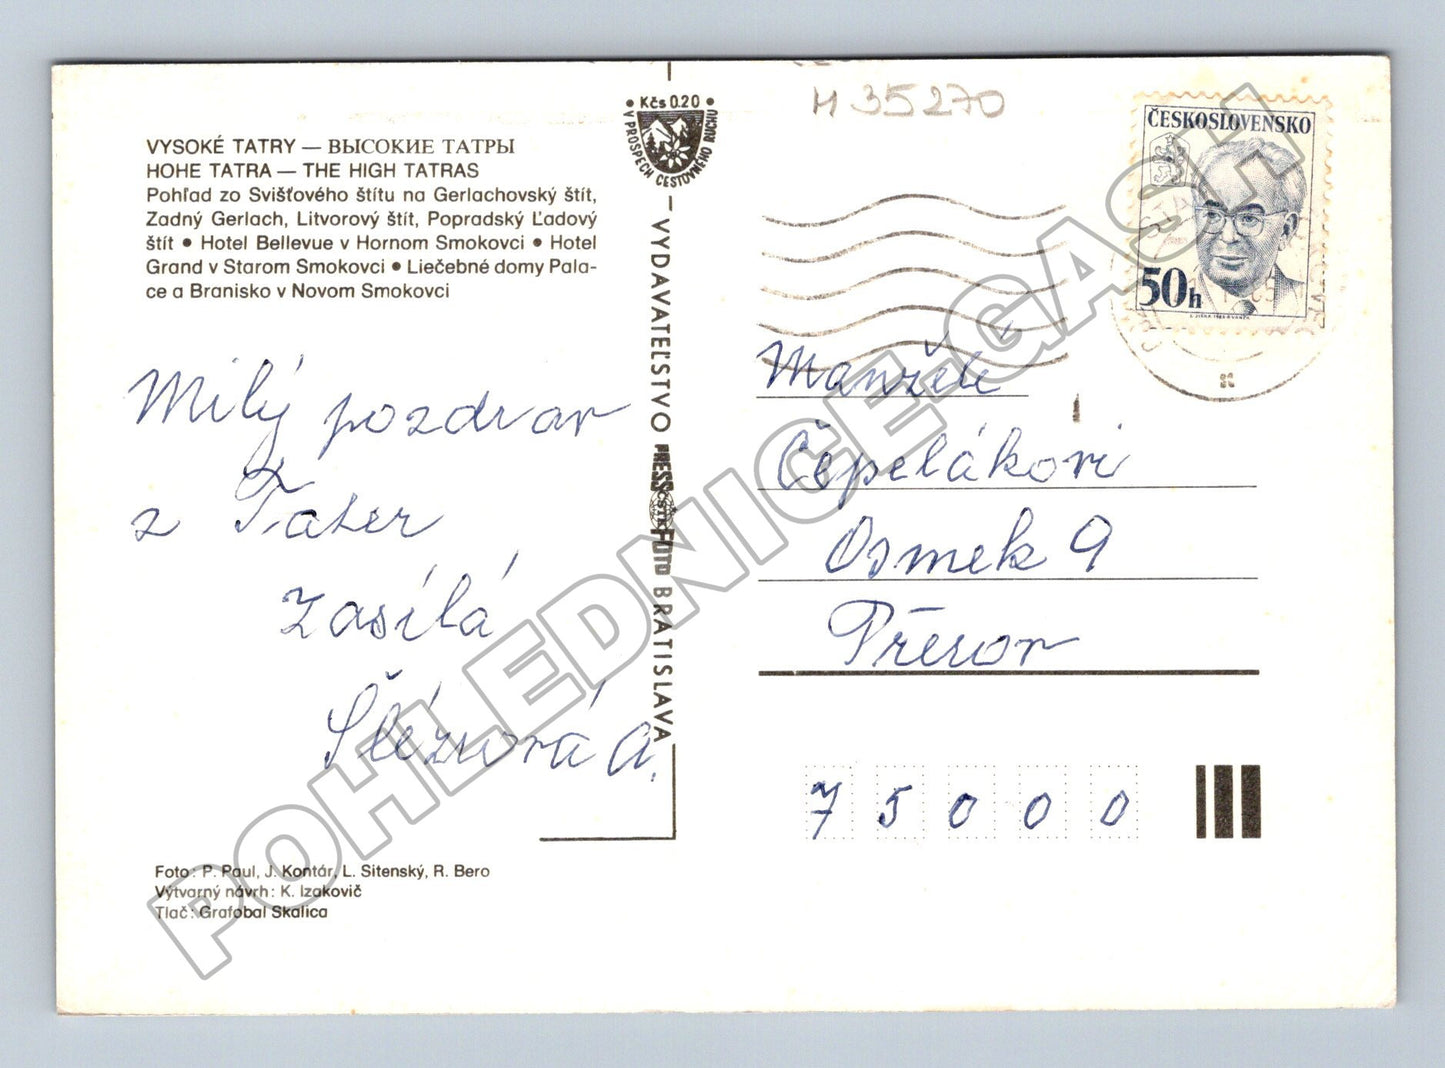 M 35270
VYSOKÉ TATRY — ВЫСОКИЕ ТАТРЫ
HOHE TATRA — THE HIGH TATRAS
Pohľad zo Svišťového štítu na Gerlachovský štít,
Zadný Gerlach, Litvorový štít, Popradský Ľadový
štít • Hotel Bellevue v Hornom Smokovci • Hotel
Grand v Starom Smokovci • Liečebné domy Pala-
ce a Branisko v Novom Smokovci
Milý pozdrav
z Tater
zasílá
Šlézurová A.
Foto: P. Paul, J. Kontár, L. Sitenský, R. Bero
Výtvarný návrh: K. Izakovič
Tlač: Grafobal Skalica
• Kčs 0.20 •
V PROSPECH CESTOVNÉHO RUCHU
VYDAVATEĽSTVO PRESSFOTO BRATISLAVA
ČSTK
ČESKOSLOVENSKO
50h
Manželé
Čépelákovi
Osmek 9
Přerov
75000
POHLEDNICE-GASH